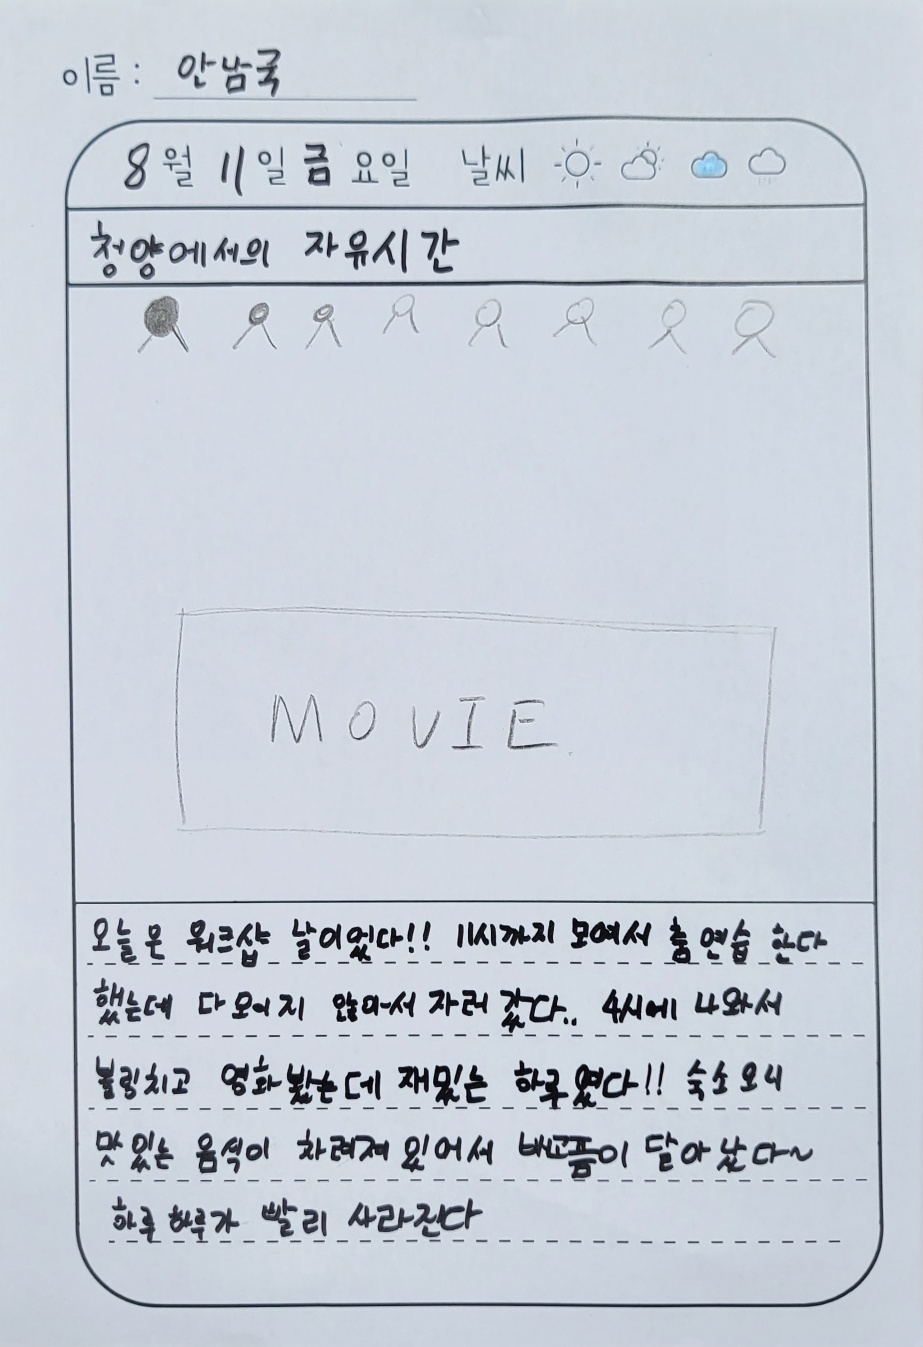 이름 : 안남국
8월 11일 금요일 날씨
청양에서의 자유시간
MOVIE.
오늘은 워크샵 날이었다!! 11시까지 모여서 춤연습 한다
했는데 다 모이지 않아서 자러 갔다.. 4시에 나와서
볼링치고 영화봤는데 재밌는 하루였다!! 숙소오니
맛있는 음식이 차려져 있어서 배고픔이 달아났다~
하루하루가 빨리 사라진다